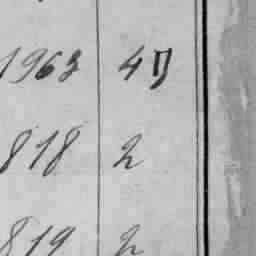 1963 4 П
818 2
819 2